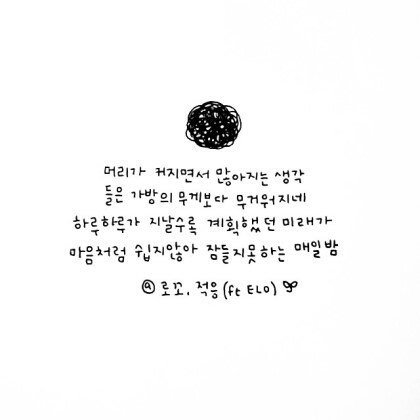 머리가 커지면서 많아지는 생각
들은 가방의 무게보다 무거워지네
하루하루가 지날수록 계획했던 미래가
마음처럼 쉽지않아 잠들지못하는 매일밤
@ 로꼬, 적응 (ft ELO)